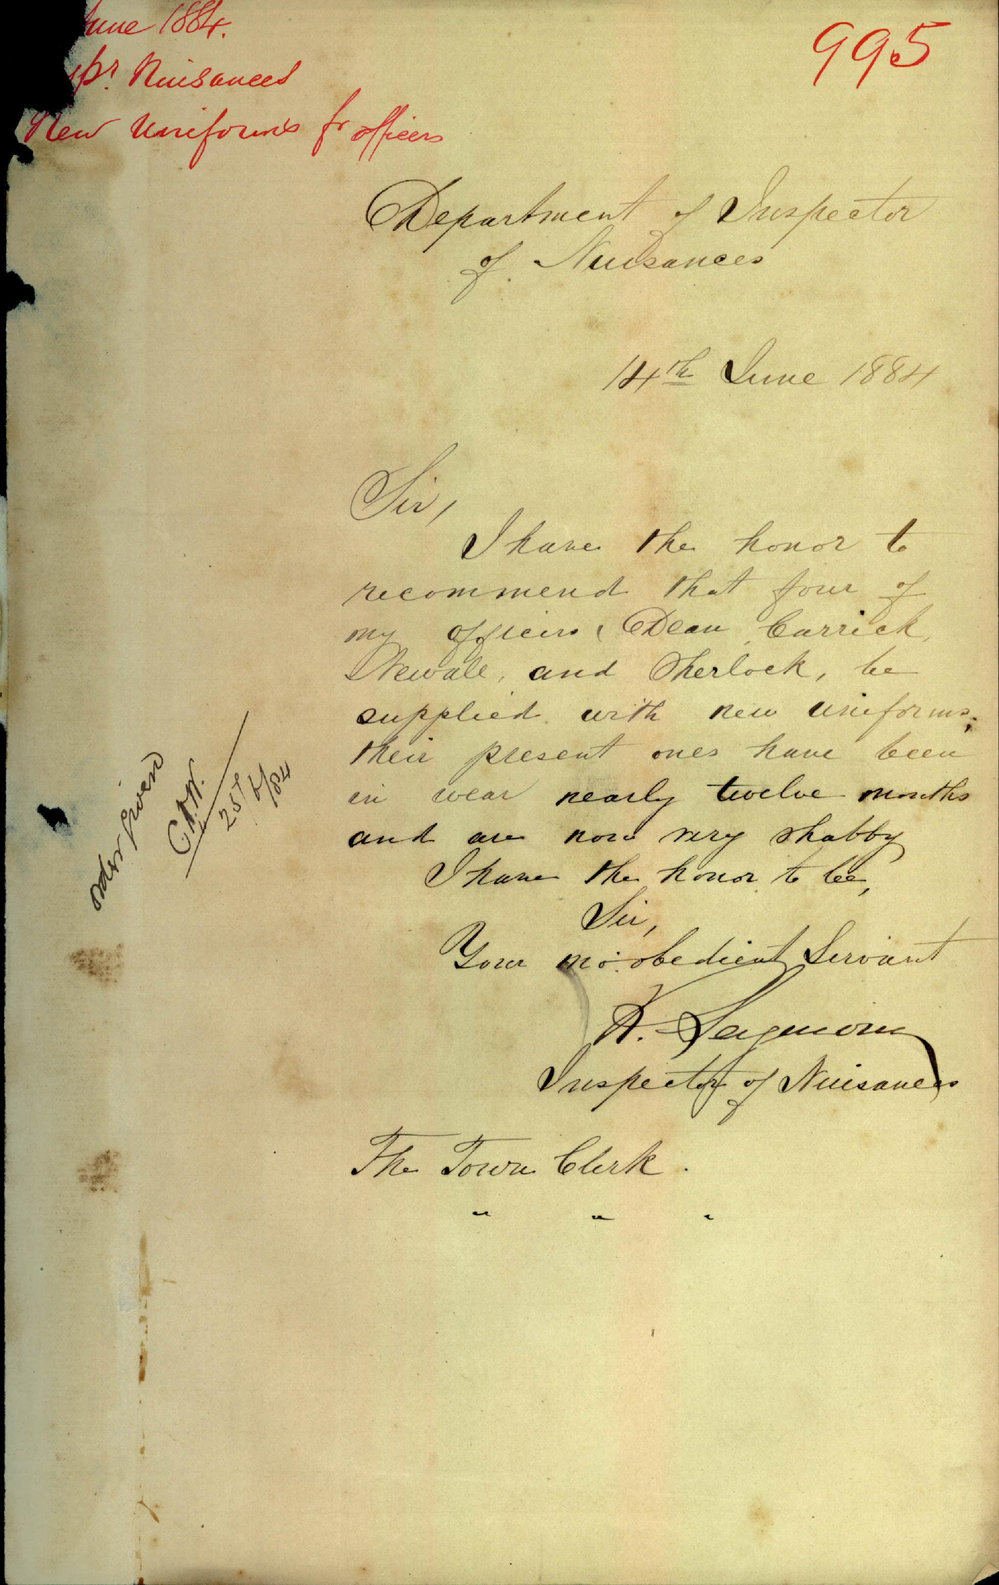 June 1884.
Nuisances
New Uniforms fr officers
995
Department of Inspector
of Nuisances
14th June 1884
Sir,
I have the honor to
recommend that four of
my officers, Dean, Carrick,
Newale, and Sherlock, be
supplied with new uniforms;
their present ones have been
in wear nearly twelve months
and are now very shabby
I have the honor to be,
Sir,
Your mo: obedient Servant
R. Seymour
Inspector of Nuisances
The Town Clerk.
" " "
order given
C.H.W.
25/6/84